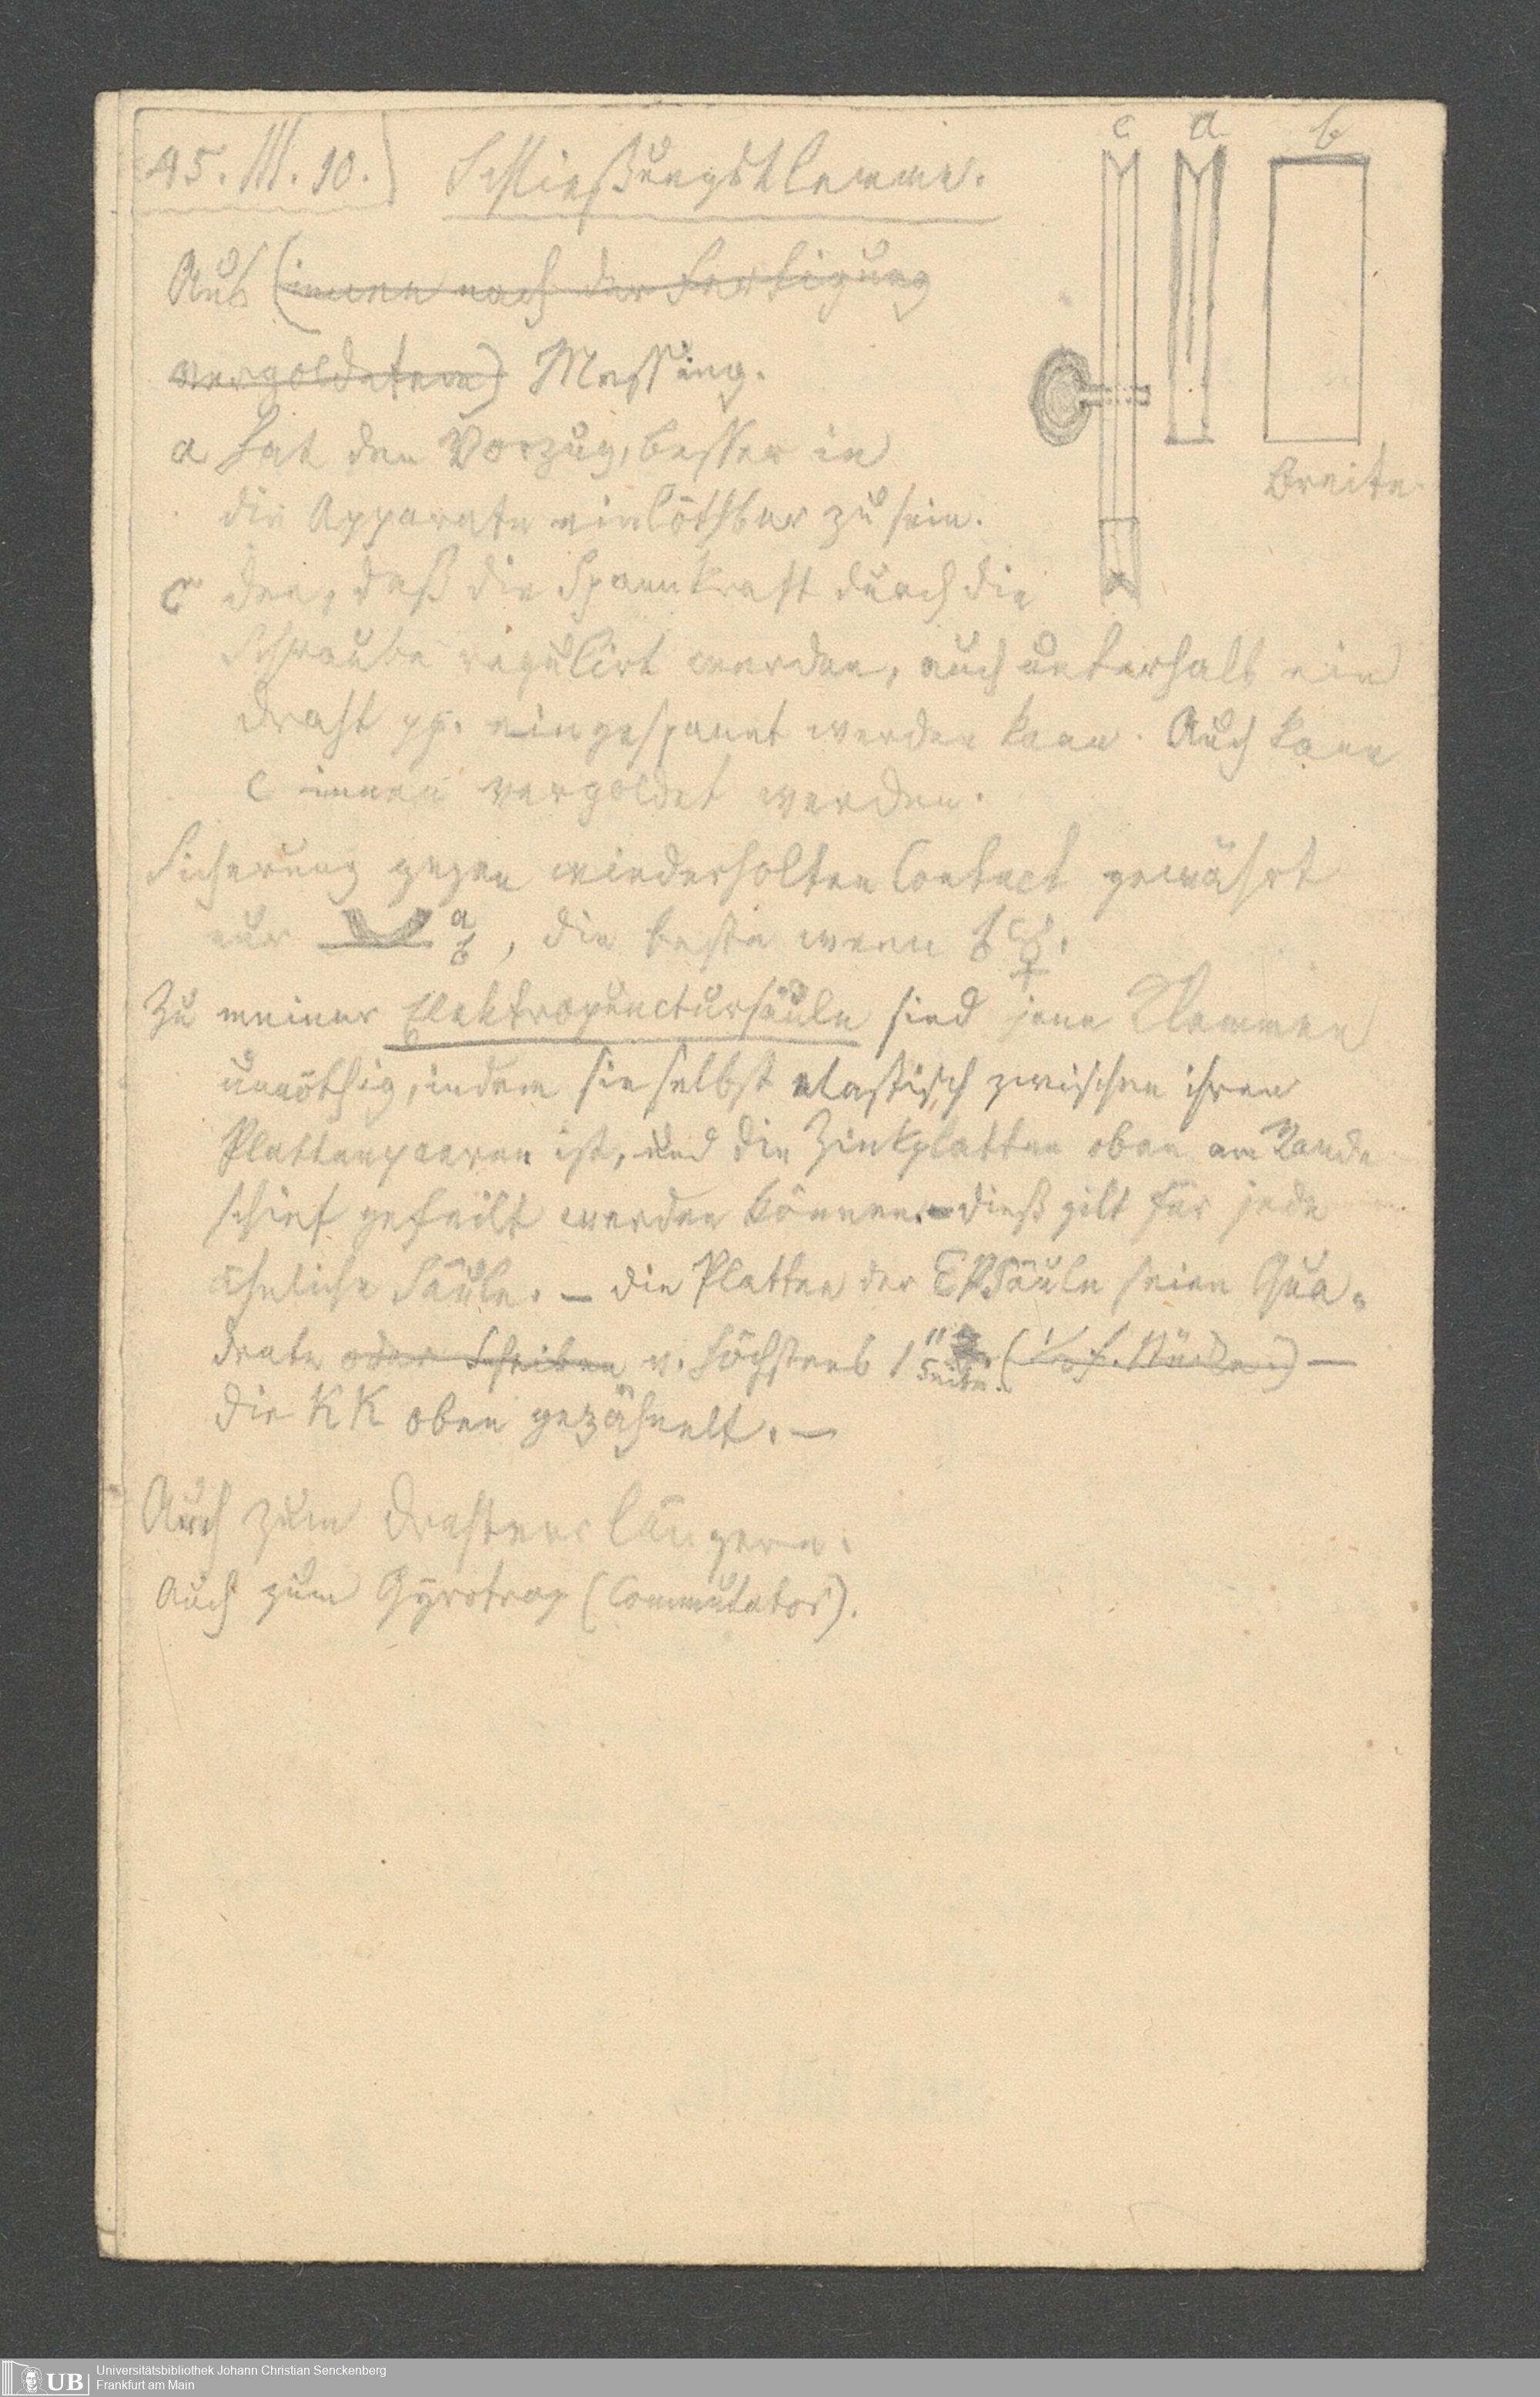 45. III. 10.) Schließungsklemme.
c a b
Aus (innen nach der Fertigung
vergoldetem) Messing.
a hat den Vorzug, besser in
die Apparate einlöthbar zu sein.
Breite
c den, daß die Spannkraft durch die
Schraube regulirt werden, auch unterhalb ein
Draht pp. eingespannt werden kann. Auch kann
c innen vergoldet werden.
Sicherung gegen wiederholten Contact gewährt
nur a
b, die beste wenn b
Zu meiner Elektropunctursäule sind jene Klemmen
unnöthig, indem sie selbst elastisch zwischen ihren
Plattenpaaren ist, und die Zinkplatten oben am Rande
schief gefeilt werden können. – dieß gilt für jede
ähnliche Säule. – die Platten der EPSäule seien Qua-
drate oder Scheiben v. höchstens 1" Seite. –
die KK oben gezähnelt. –
Auch zum Drahtverlängern.
Auch zum Gyrotrop (Commutator).
UB
Universitätsbibliothek Johann Christian Senckenberg
Frankfurt am Main